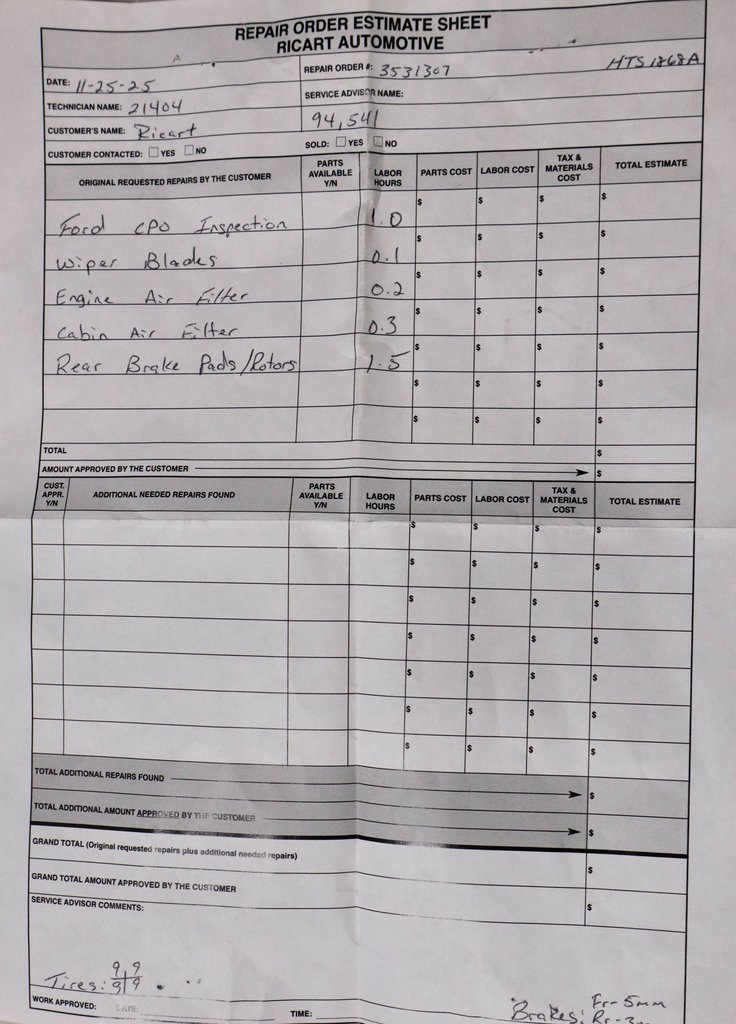 REPAIR ORDER ESTIMATE SHEET
RICART AUTOMOTIVE
DATE: 11-25-25
REPAIR ORDER #: 3531307 HTS1868A
TECHNICIAN NAME: 21404
SERVICE ADVISOR NAME:
CUSTOMER'S NAME: Ricart
94,541
CUSTOMER CONTACTED: ☐ YES ☐ NO
SOLD: ☐ YES ☐ NO
ORIGINAL REQUESTED REPAIRS BY THE CUSTOMER PARTS AVAILABLE Y/N LABOR HOURS PARTS COST LABOR COST TAX & MATERIALS COST TOTAL ESTIMATE
Ford CPO Inspection 1.0 $ $ $ $
Wiper Blades 0.1 $ $ $ $
Engine Air Filter 0.2 $ $ $ $
Cabin Air Filter 0.3 $ $ $ $
Rear Brake Pads/Rotors 1.5 $ $ $ $
$ $ $ $
$ $ $ $
TOTAL $
AMOUNT APPROVED BY THE CUSTOMER $
CUST. APPR. Y/N ADDITIONAL NEEDED REPAIRS FOUND PARTS AVAILABLE Y/N LABOR HOURS PARTS COST LABOR COST TAX & MATERIALS COST TOTAL ESTIMATE
$ $ $ $
$ $ $ $
$ $ $ $
$ $ $ $
$ $ $ $
$ $ $ $
$ $ $ $
TOTAL ADDITIONAL REPAIRS FOUND $
TOTAL ADDITIONAL AMOUNT APPROVED BY THE CUSTOMER $
GRAND TOTAL (Original requested repairs plus additional needed repairs) $
GRAND TOTAL AMOUNT APPROVED BY THE CUSTOMER $
SERVICE ADVISOR COMMENTS:
Tires: 9 9
9 9
Brakes: Fr-5mm
Rr-3m
WORK APPROVED: DATE: TIME: